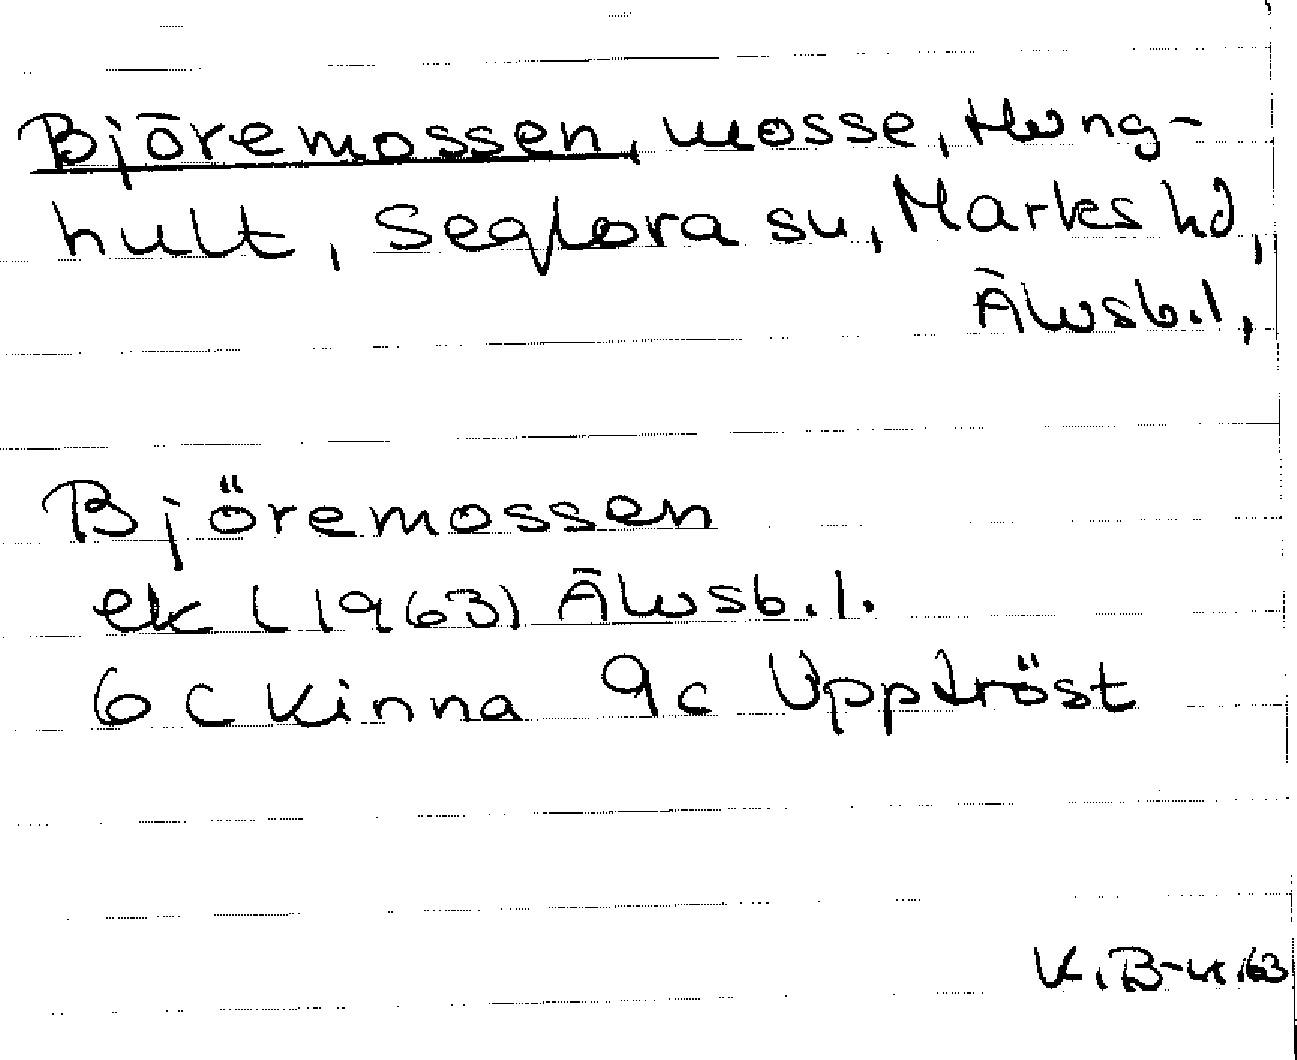 Björemossen, mosse, Hung-
hult, Seglora sn, Marks hd,
Älvsb.l,
Björemossen
ek (1963) Älvsb.l.
6c Kinna 9c Upptröst
K.B-n.63